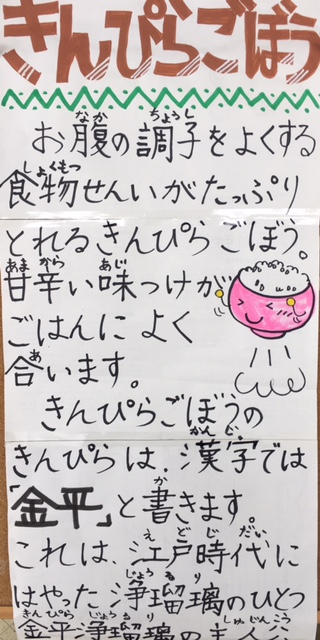 きんぴらごぼう
お腹の調子をよくする
食物せんいがたっぷり
とれるきんぴらごぼう。
甘辛い味つけが
ごはんによく
合います。
きんぴらごぼうの
きんぴらは、漢字では
「金平」と書きます。
これは、江戸時代に
はやった浄瑠璃のひとつ
金平浄瑠璃の主